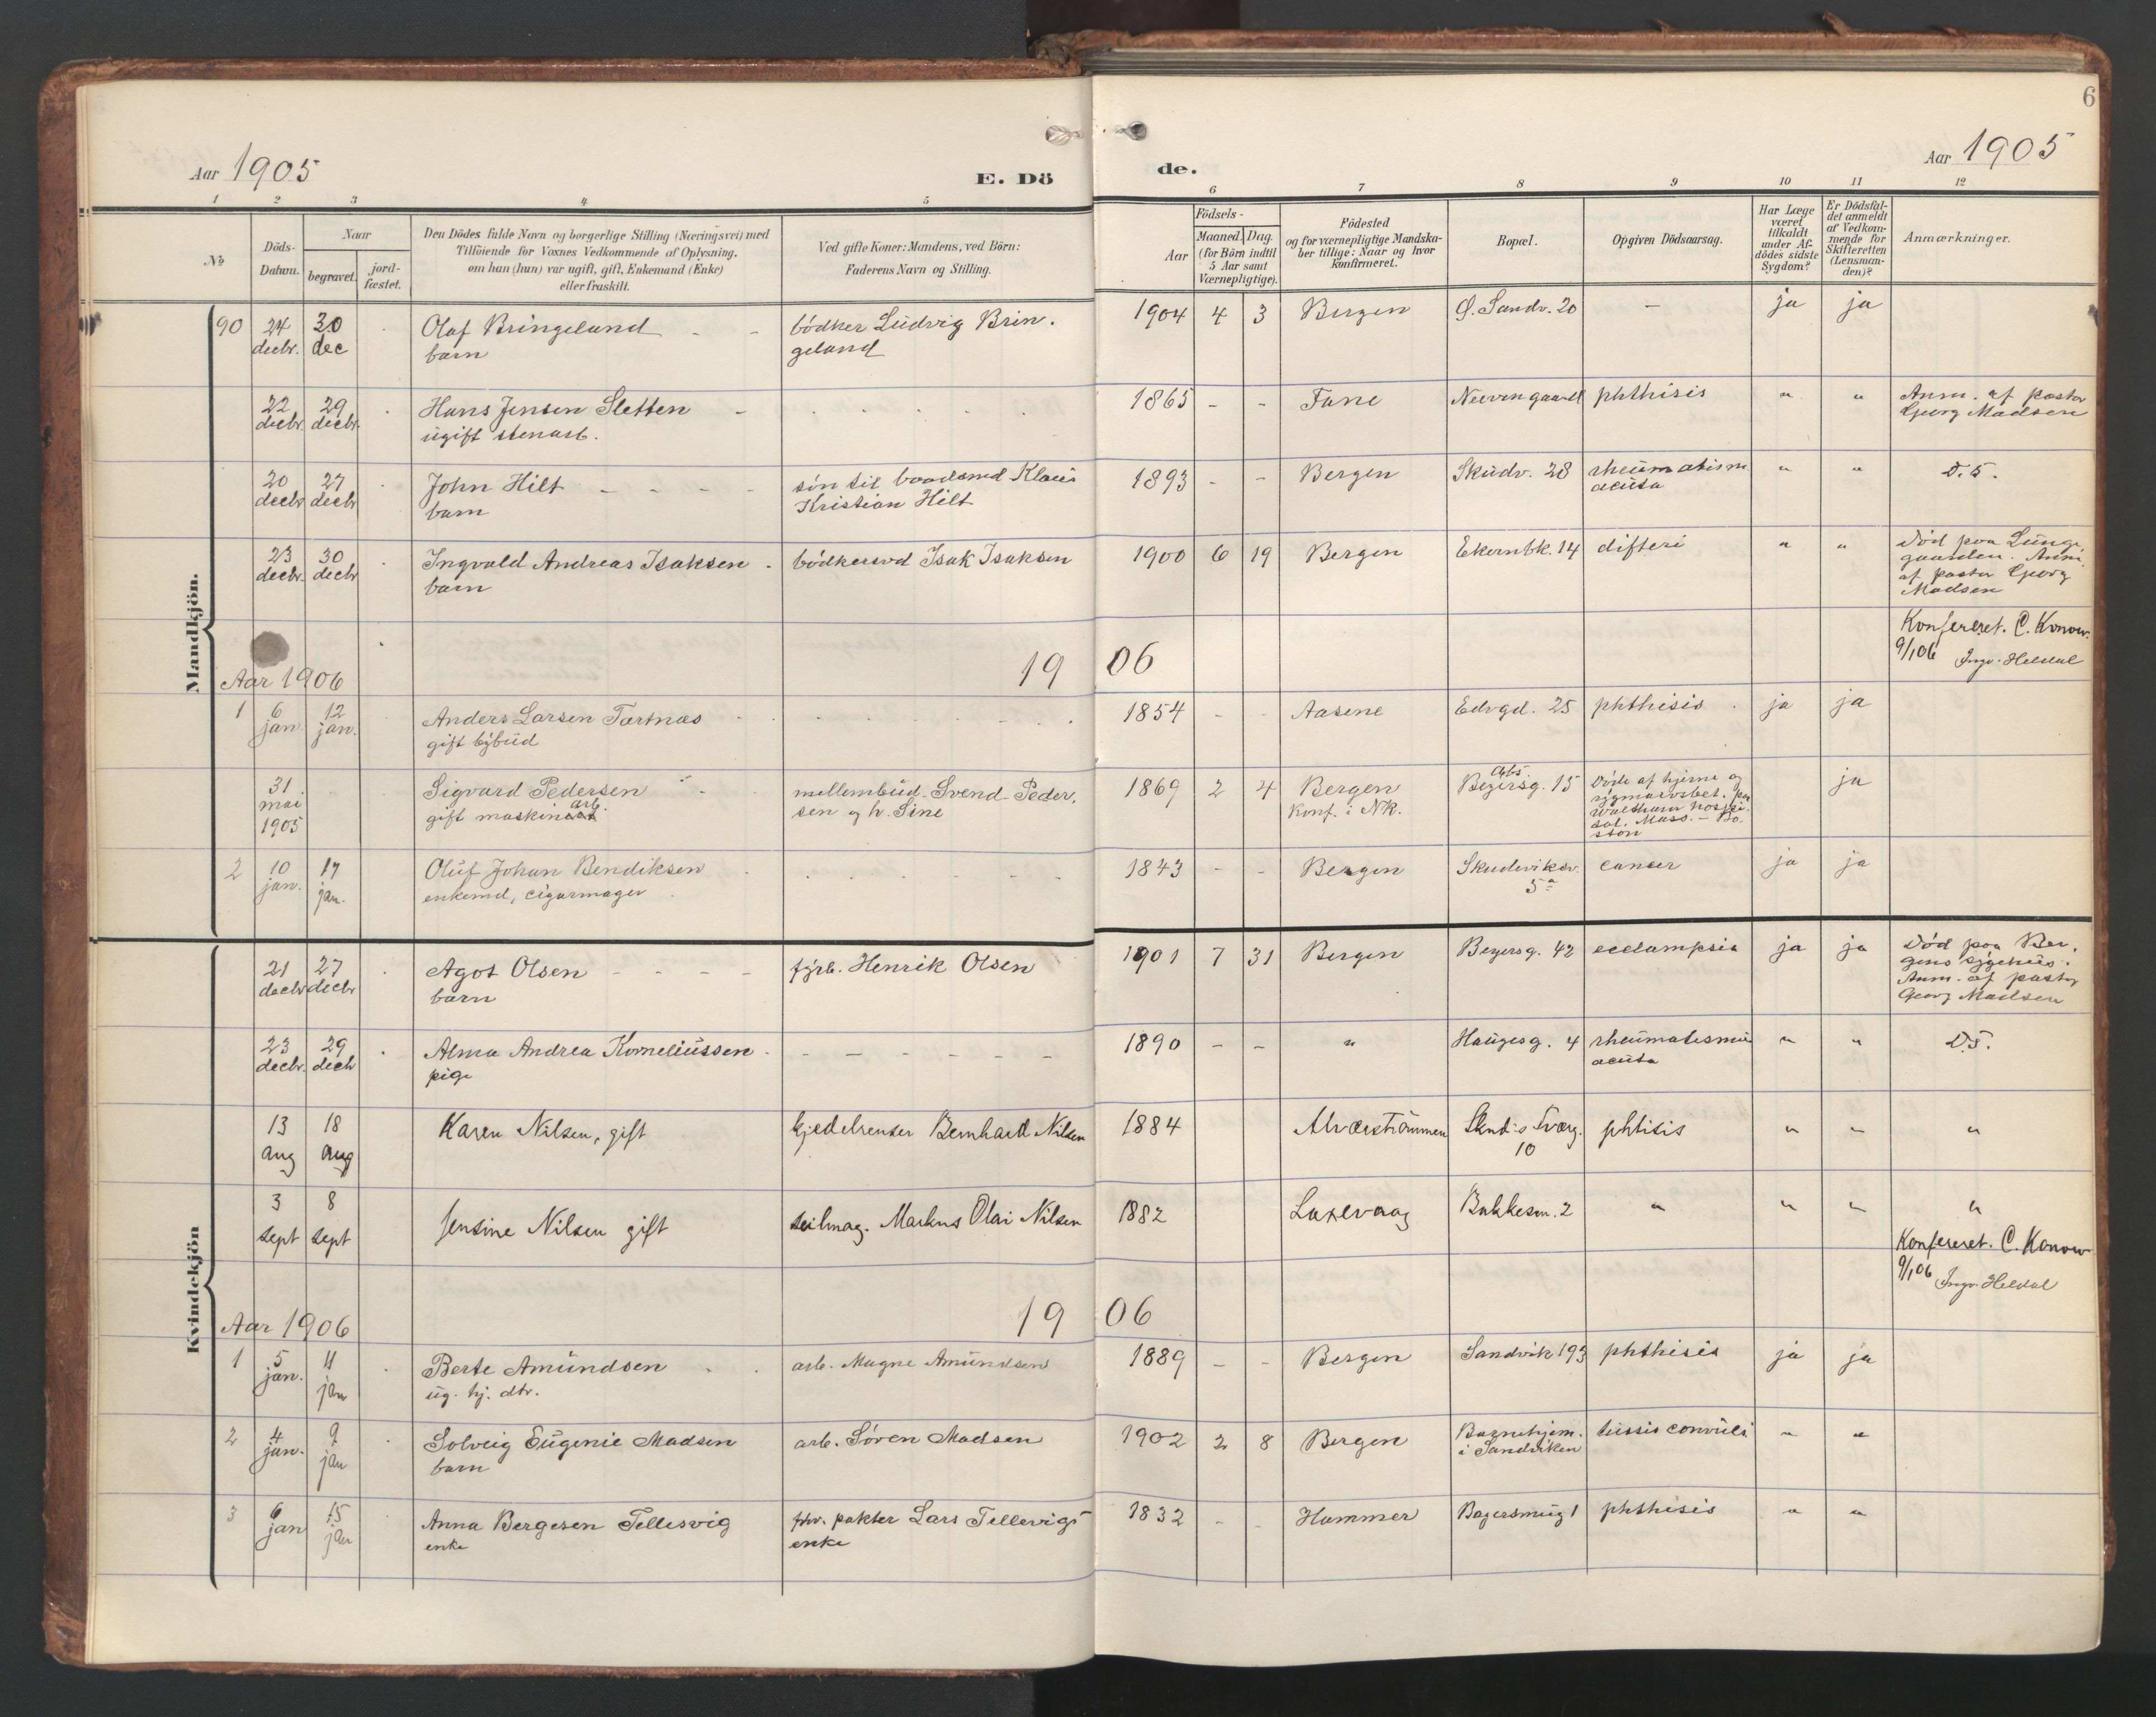 6
Aar 1905
E. Dö de.
Aar 1905
1 2 3 4 5 6 7 8 9 10 11 12
No
Döds-
Datum.
Naar
begravet.
jord-
fæstet.
Den Dödes fulde Navn og borgerlige Stilling (Næringsvei) med
Tilföiende for Voxnes Vedkommende af Oplysning,
om han (hun) var ugift, gift, Enkemand (Enke)
eller fraskilt.
Ved gifte Koner: Mandens, ved Börn:
Faderens Navn og Stilling.
Födsels-
Aar
Maaned. Dag.
(for Börn indtil
5 Aar samt
Værnepligtige).
Födested
og for værnepligtige Mandska-
ber tillige: Naar og hvor
konfirmeret.
Bopæl.
Opgiven Dödsaarsag.
Har Læge
været
tilkaldt
under Af-
dödes sidste
Sygdom?
Er Dödsfal-
det anmeldt
af Vedkom-
mende for
Skifteretten
(Lensman-
den)?
Anmærkninger.
Mandkjön.
90 24 30 Olaf Bringeland - - bödker Ludvig Brin- 1904 4 3 Bergen Ø. Sandv. 20 - ja ja
decbr. dec barn geland
22 29 Hans Jensen Sletten - 1865 - - Fane Neevengaard phthisis " " Anm. af pastor
decbr. decbr. ugift stenarb. Georg Madsen
20 27 John Hilt - - - - sön til baadsmd Klaus 1893 - - Bergen Skudv. 28 rheumatism. " " D. S.
decbr decbr barn Kristian Hilt acuta
23 30 Ingvald Andreas Isaksen bödkersvd Isak Isaksen 1900 6 19 Bergen Ekernbk. 14 difteri " " död paa Lunge-
decbr. decbr barn gaarden. Anm.
af pastor Georg
Madsen
Konfereret. C. Konow.
9/1 06 Ingv. Heldal
Aar 1906 19 06
1 6 12 Anders Larsen Tærtnæs 1854 - - Aasene Edvgd. 25 phthisis ja ja
jan. jan. gift bybud
31 Sigvard Pedersen mellembud Svend Peder- 1869 2 4 Bergen Beyersg. 15 Döde af hjerne og ja
mai gift maskinarb. sen og h. Sine Konf. i NK. rygmarvsbet. paa
1905 Waltham hospi-
tal, Mass. - Bo-
ston
2 10 17 Oluf Johan Bendiksen 1843 - - Bergen Skudeviksv. cancer ja ja
jan. jan. enkemd, cigarmager 5a
Kvindekjön
21 27 Agot Olsen - - - - fyrb. Henrik Olsen 1901 7 31 Bergen Beyersg. 42 eclampsia ja ja Död paa Ber-
decbr decbr barn gens sygehus.
Anm. af pastor
Georg Madsen
23 29 Alma Andrea Korneliussen - - - - - - 1890 - - " Haugesg. 4 rheumatismus " " D.S.
decbr. decb pige acuta
13 18 Karen Nilsen, gift kjedelrenser Bernhard Nilsen 1884 Alværströmmen Skud:s Tværg. phtisis " " "
aug aug 10
3 8 Jensine Nilsen gift seilmag. Markus Olai Nilsen 1882 Laxevaag Bakkesm. 2 " " " "
sept sept
Konfereret. C. Konow
9/1 06 Ingv. Heldal
Aar 1906 19 06
1 5 11 Berte Amundsen arb. Magne Amundsen 1889 - - Bergen Sandvik 193 phthisis ja ja
jan. jan ug. hj. dtr.
2 4 9 Solveig Eugenie Madsen arb. Sören Madsen 1902 2 8 Bergen Barnehjem. tussis convuls " "
jan. jan barn i Sandviken
3 6 15 Anna Bergesen Tellesvig fhv. pakter Lars Tellevigs 1832 - - Hammer Bagersmug 1 phthisis " "
jan jan enke enke